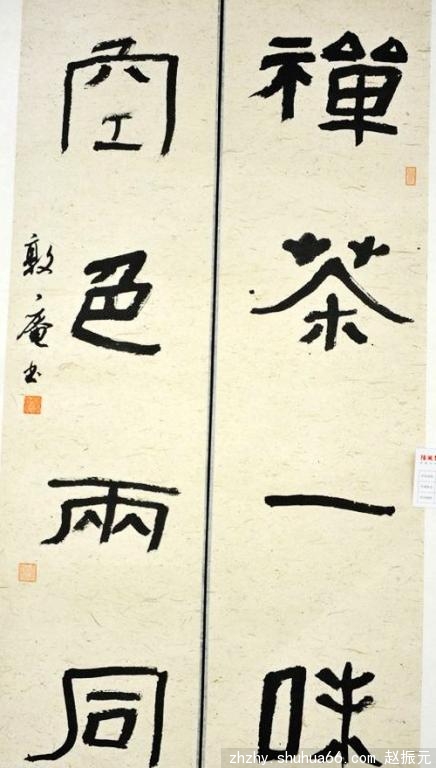 禪茶一味
空色兩同
敦庵书
zhzhy.shuhua66.com 赵振元